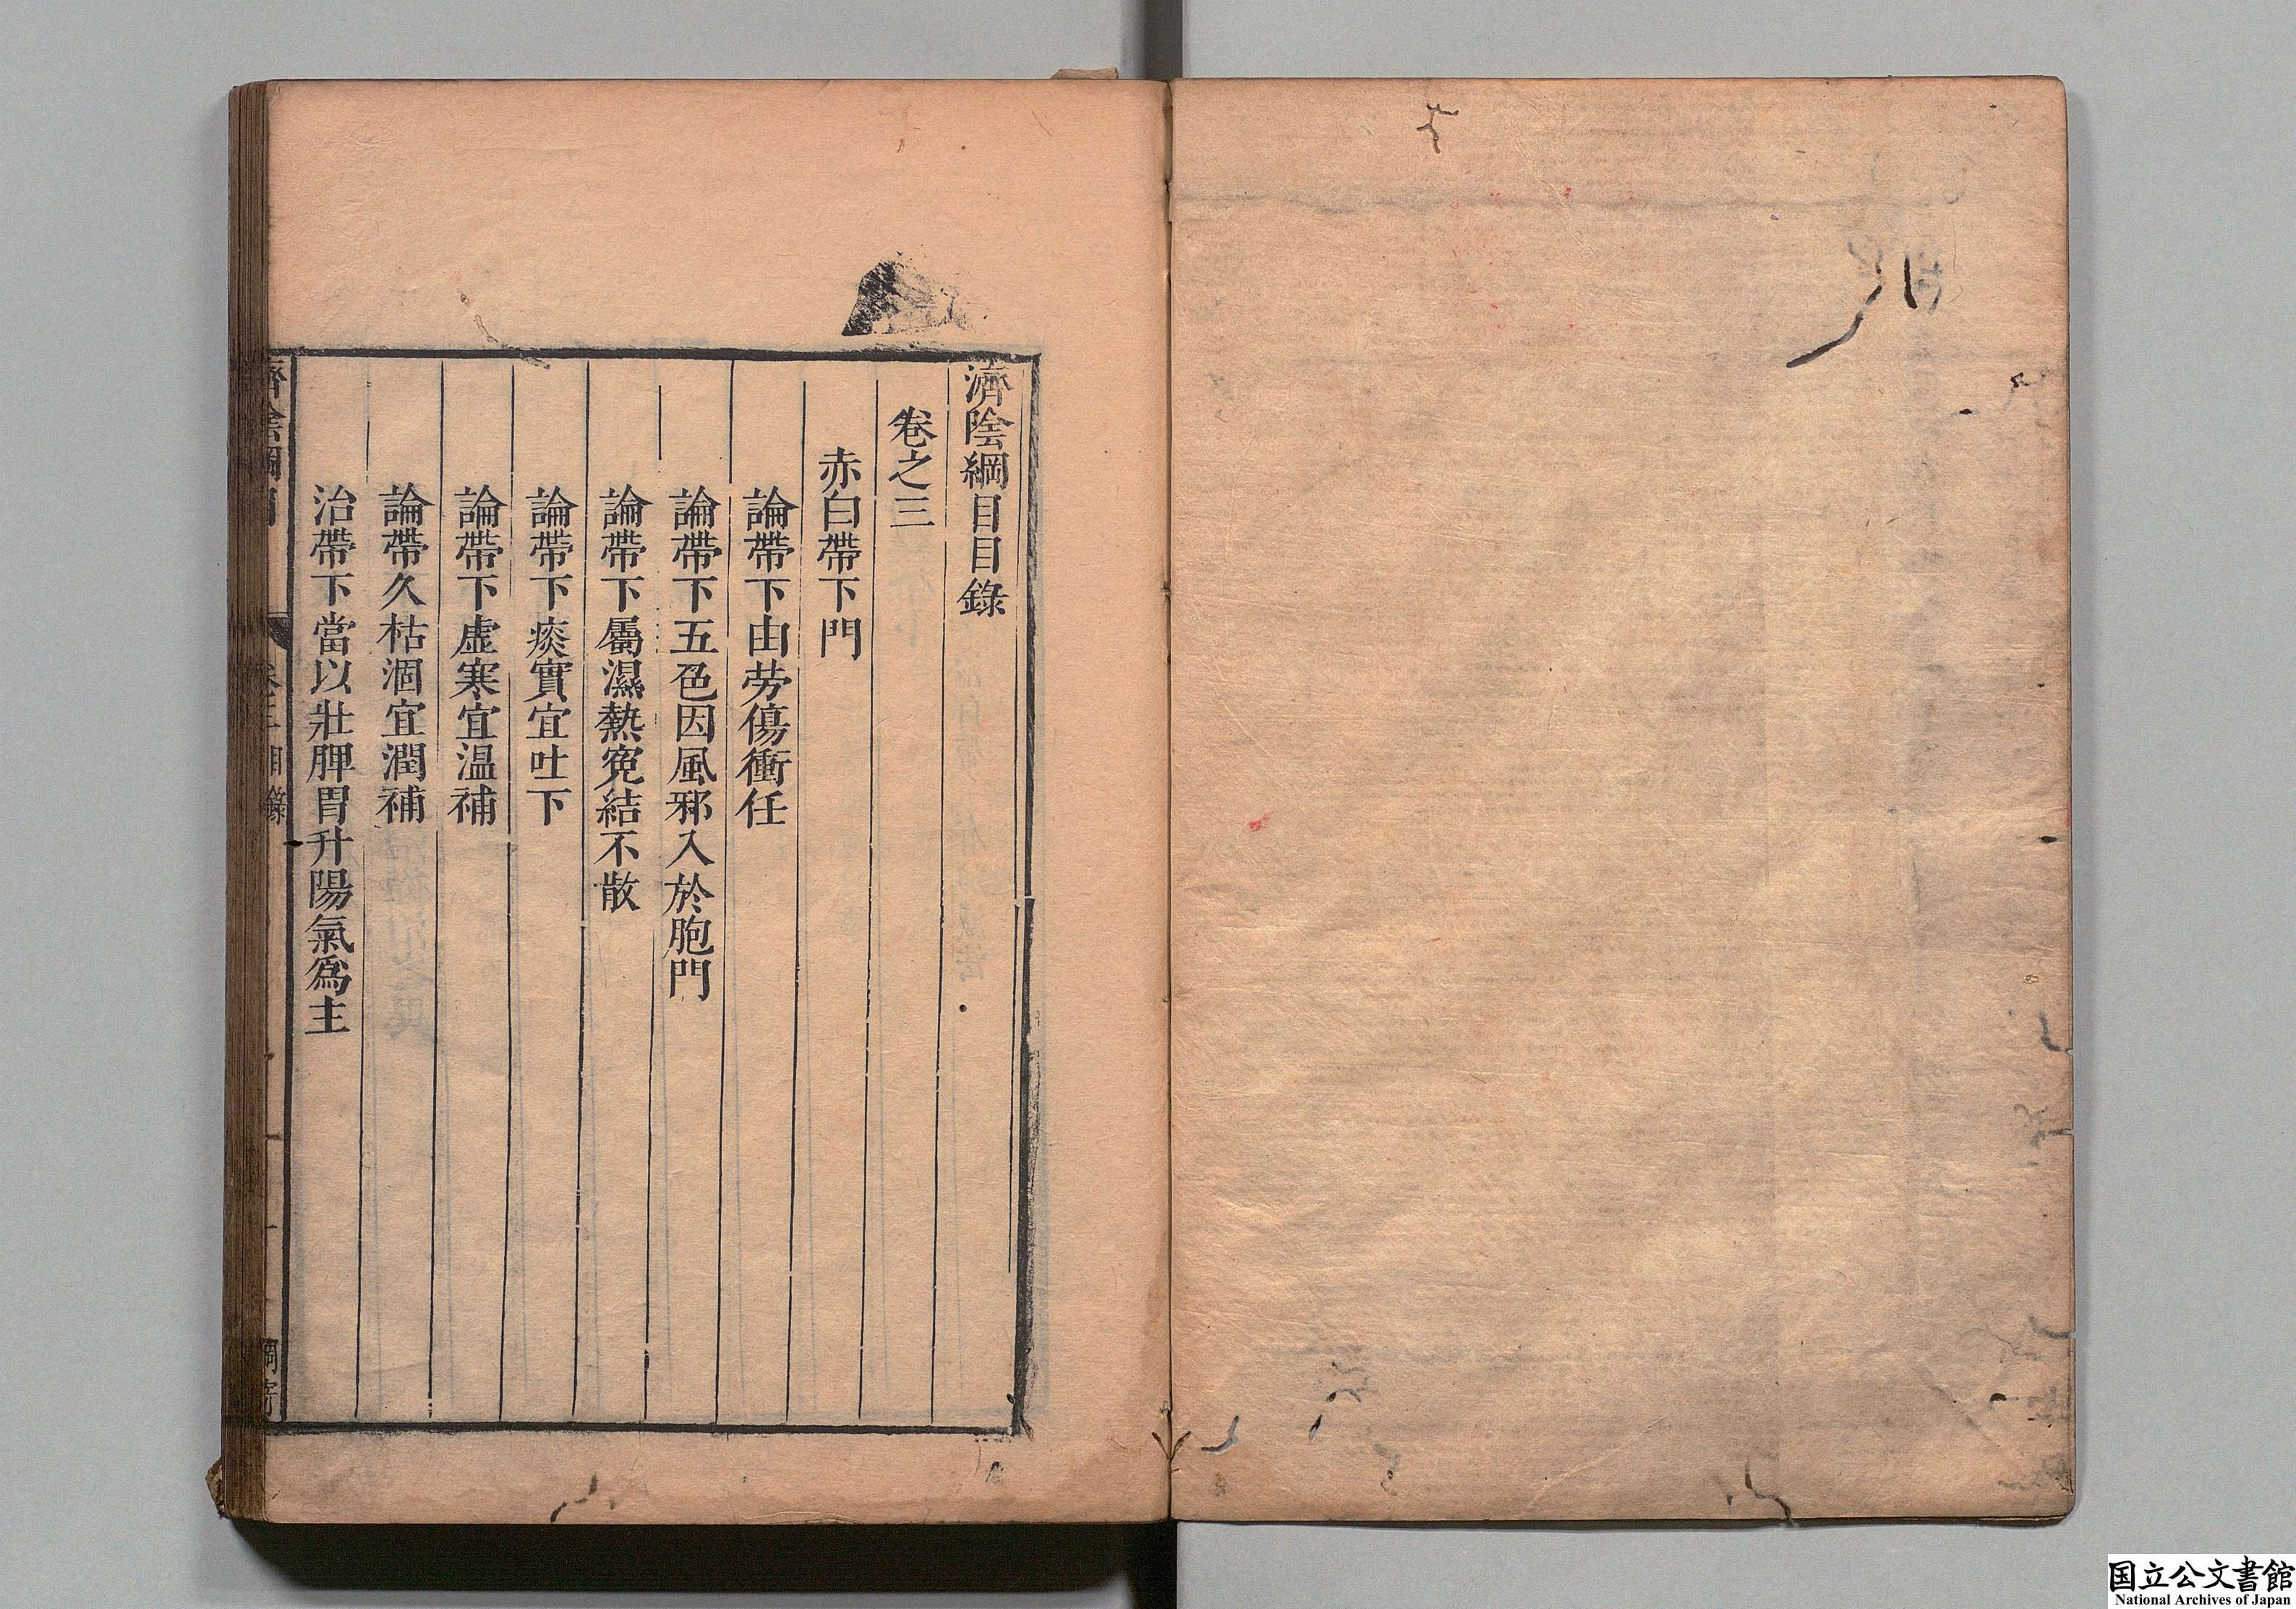 濟陰綱目目錄
卷之三
赤白帶下門
論帶下由勞傷衝任
論帶下五色因風邪入於胞門
論帶下屬濕熱寃結不散
論帶下痰實宜吐下
論帶下虛寒宜温補
論帶久枯涸宜潤補
治帶下當以壯脾胃升陽氣爲主
濟陰綱目
卷三目錄
国立公文書館
National Archives of Japan